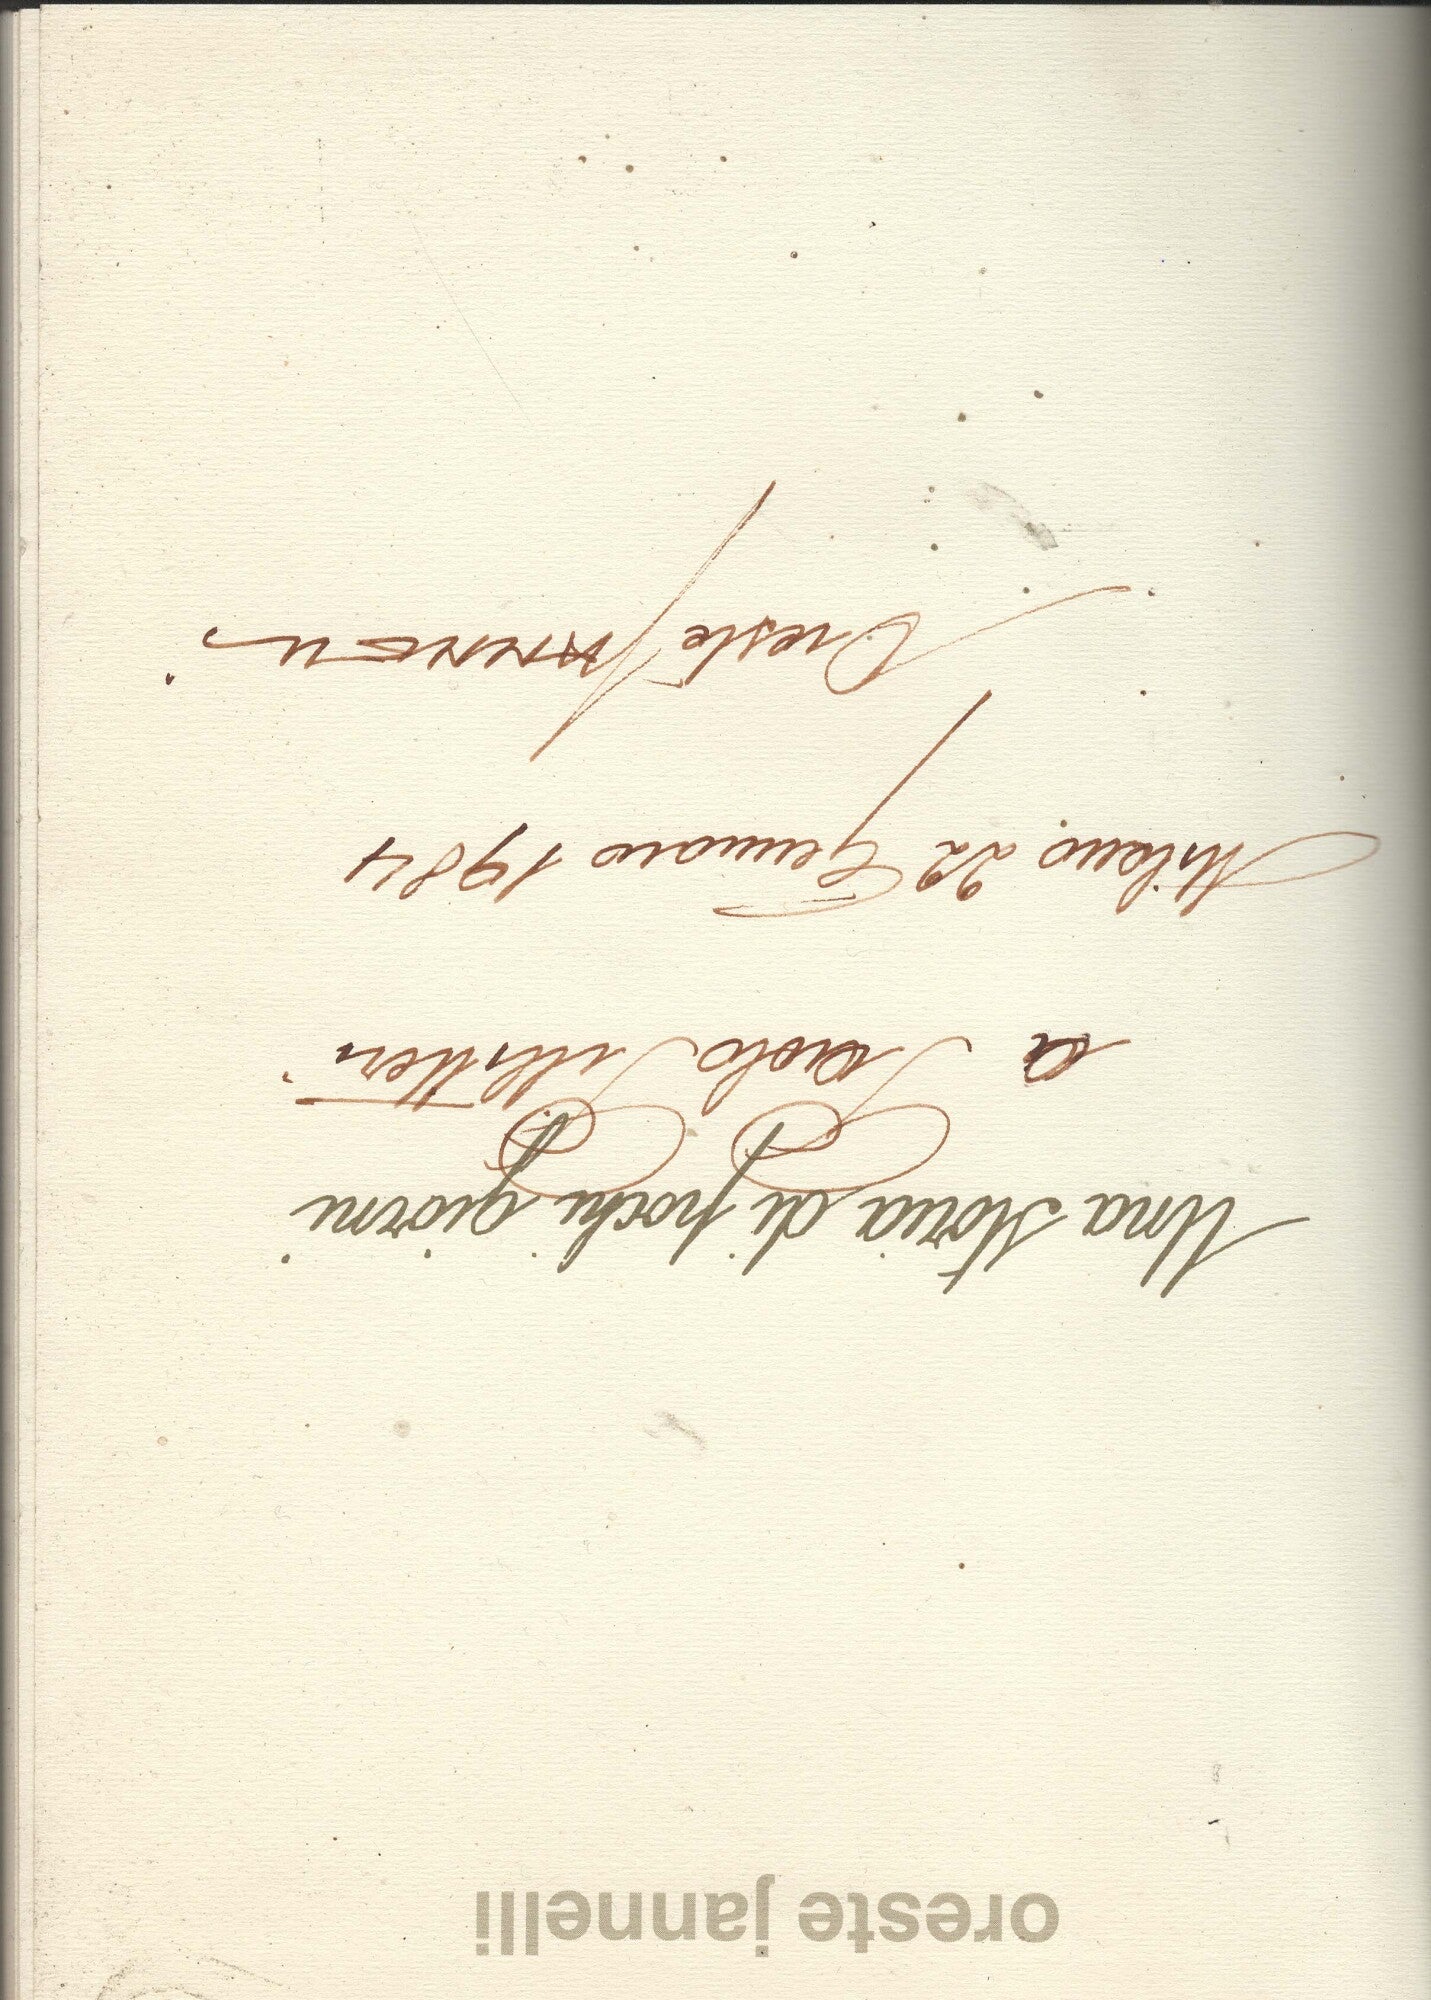 oreste jannelli
Una storia di pochi giorni
a Paolo
Milano, 22 Gennaio 1984
Oreste JANNELLI